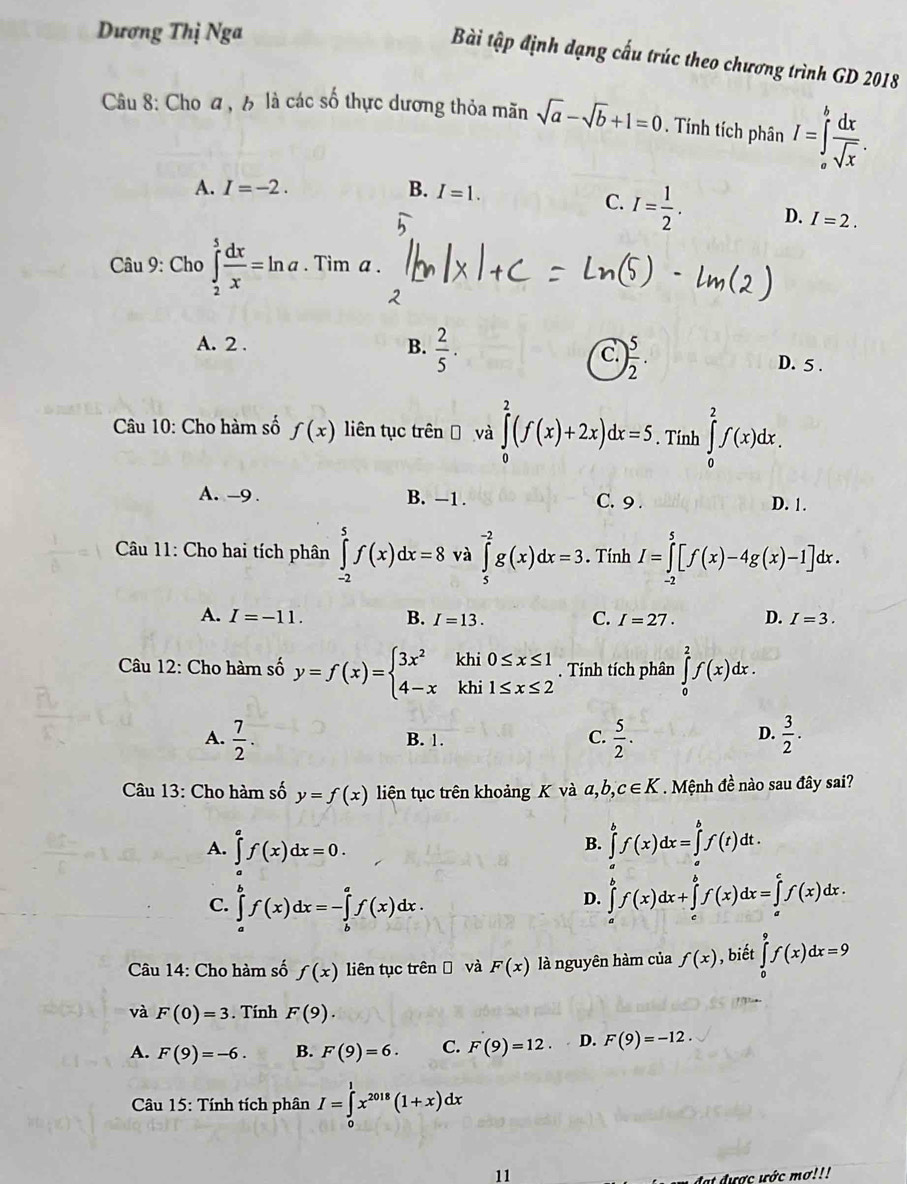 Dương Thị Nga
Bài tập định dạng cấu trúc theo chương trình GD 2018
Câu 8: Cho a , b là các số thực dương thỏa mãn √a − √b + 1 = 0 . Tính tích phân I = ∫_a^b dx/√x .
A. I = −2 . B. I = 1. C. I = 1/2 . D. I = 2 .
Câu 9: Cho ∫_2^5 dx/x = ln a . Tìm a . 5 2 ln|x| + C = Ln(5) - lm(2)
A. 2 . B. 2/5 . C. 5/2 . D. 5 .
Câu 10: Cho hàm số f(x) liên tục trên □ và ∫_0^2 (f(x)+2x)dx = 5 . Tính ∫_0^2 f(x)dx .
A. −9 . B. −1 . C. 9 . D. 1.
Câu 11: Cho hai tích phân ∫_{-2}^5 f(x)dx = 8 và ∫_5^{-2} g(x)dx = 3 . Tính I = ∫_{-2}^5 [f(x)−4g(x)−1]dx .
A. I = −11 . B. I = 13 . C. I = 27 . D. I = 3 .
Câu 12: Cho hàm số y = f(x) = { 3x² khi 0 ≤ x ≤ 1 ; 4−x khi 1 ≤ x ≤ 2 . Tính tích phân ∫_0^2 f(x)dx .
A. 7/2 . B. 1. C. 5/2 . D. 3/2 .
Câu 13: Cho hàm số y = f(x) liên tục trên khoảng K và a,b,c ∈ K . Mệnh đề nào sau đây sai?
A. ∫_a^a f(x)dx = 0 . B. ∫_a^b f(x)dx = ∫_a^b f(t)dt .
C. ∫_a^b f(x)dx = −∫_b^a f(x)dx . D. ∫_a^b f(x)dx + ∫_c^b f(x)dx = ∫_a^c f(x)dx .
Câu 14: Cho hàm số f(x) liên tục trên □ và F(x) là nguyên hàm của f(x), biết ∫_0^9 f(x)dx = 9
và F(0) = 3 . Tính F(9) .
A. F(9) = −6 . B. F(9) = 6 . C. F(9) = 12 . D. F(9) = −12 .
Câu 15: Tính tích phân I = ∫_0^1 x^2018 (1+x)dx
11
đạt được ước mơ!!!